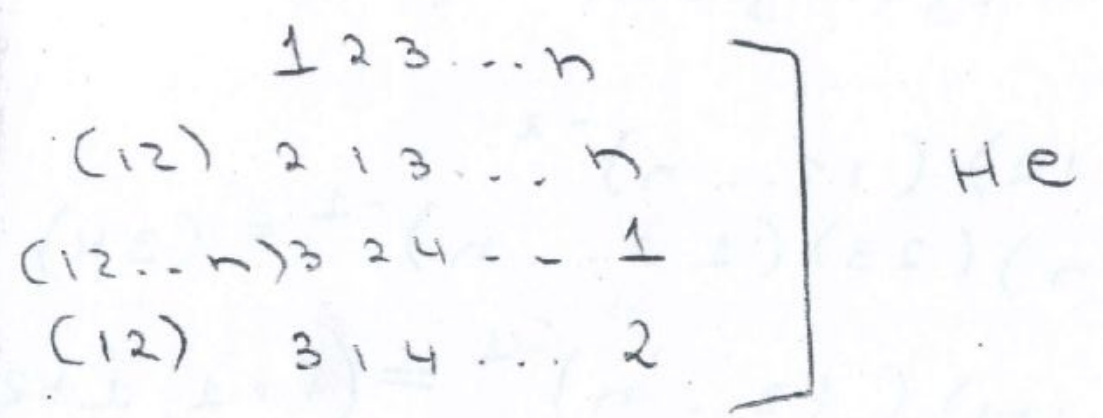 1 2 3 ... n
(12) 2 1 3 ... n
(12 .. n) 3 2 4 - - 1
(12) 3 1 4 ... 2
не